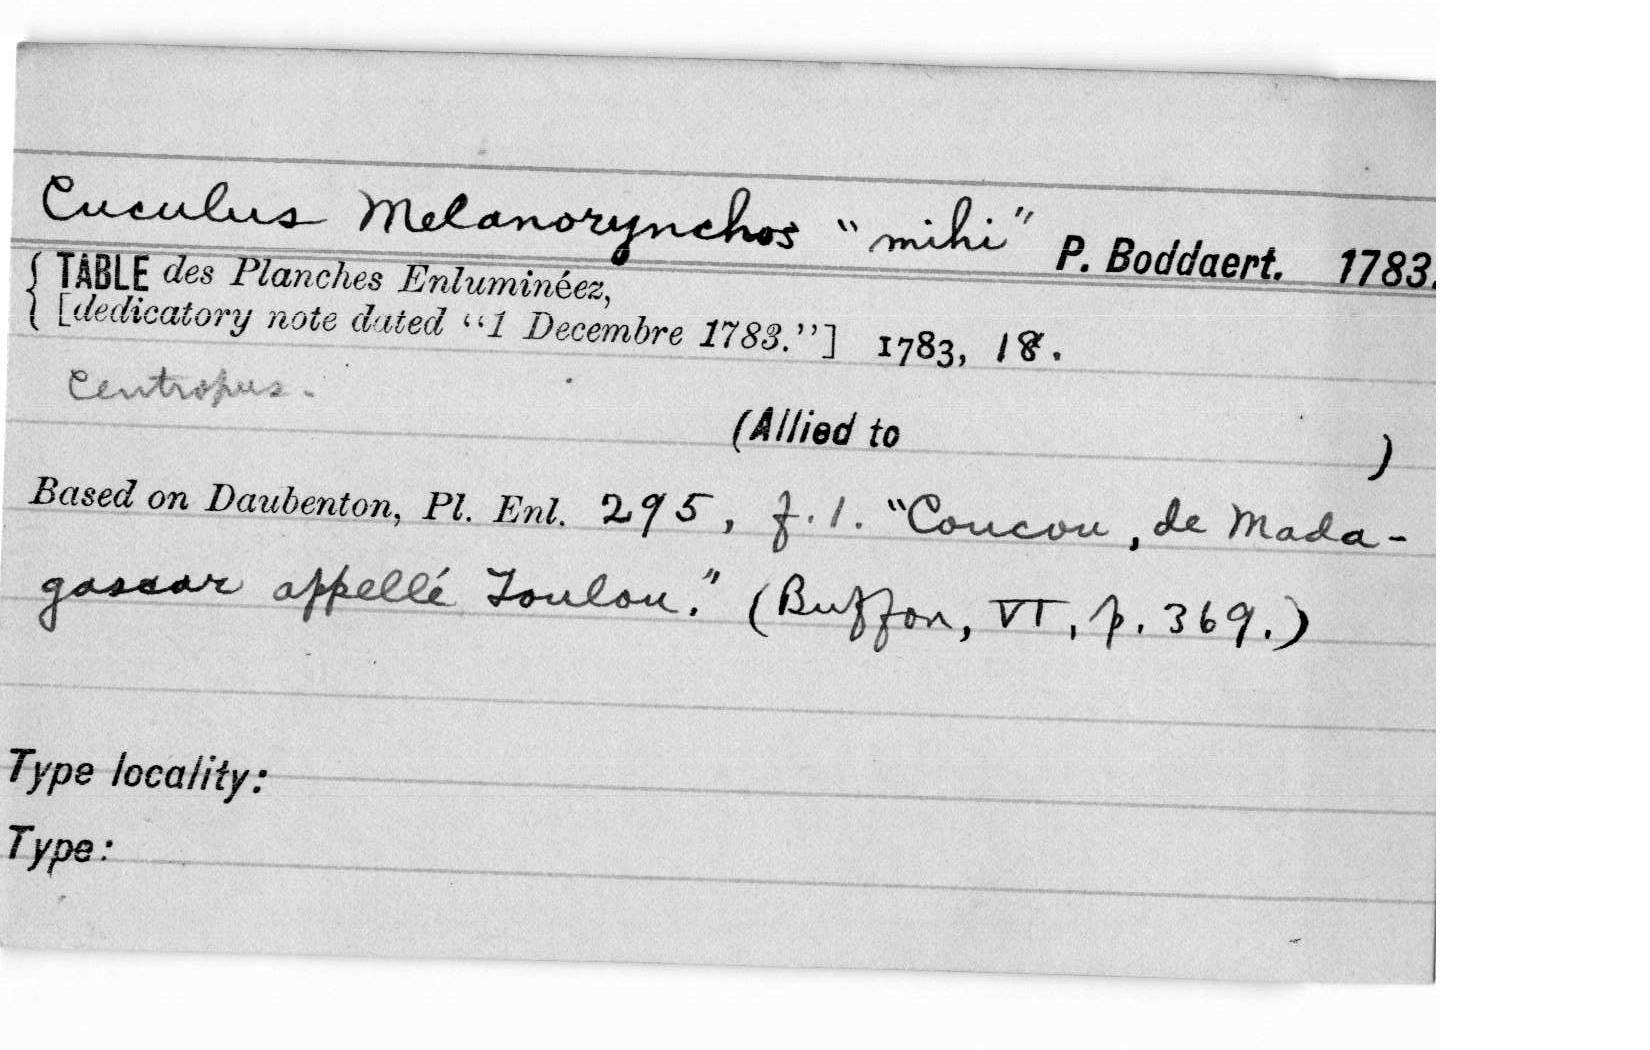 Cuculus Melanorynchos "mihi" P. Boddaert. 1783.
{ TABLE des Planches Enluminéez,
[dedicatory note dated "1 Decembre 1783."] 1783, 18.
Centropus.
(Allied to )
Based on Daubenton, Pl. Enl. 295, f. 1. "Coucou, de Mada-
gascar appellé Toulou." (Buffon, VI, p. 369.)
Type locality:
Type: